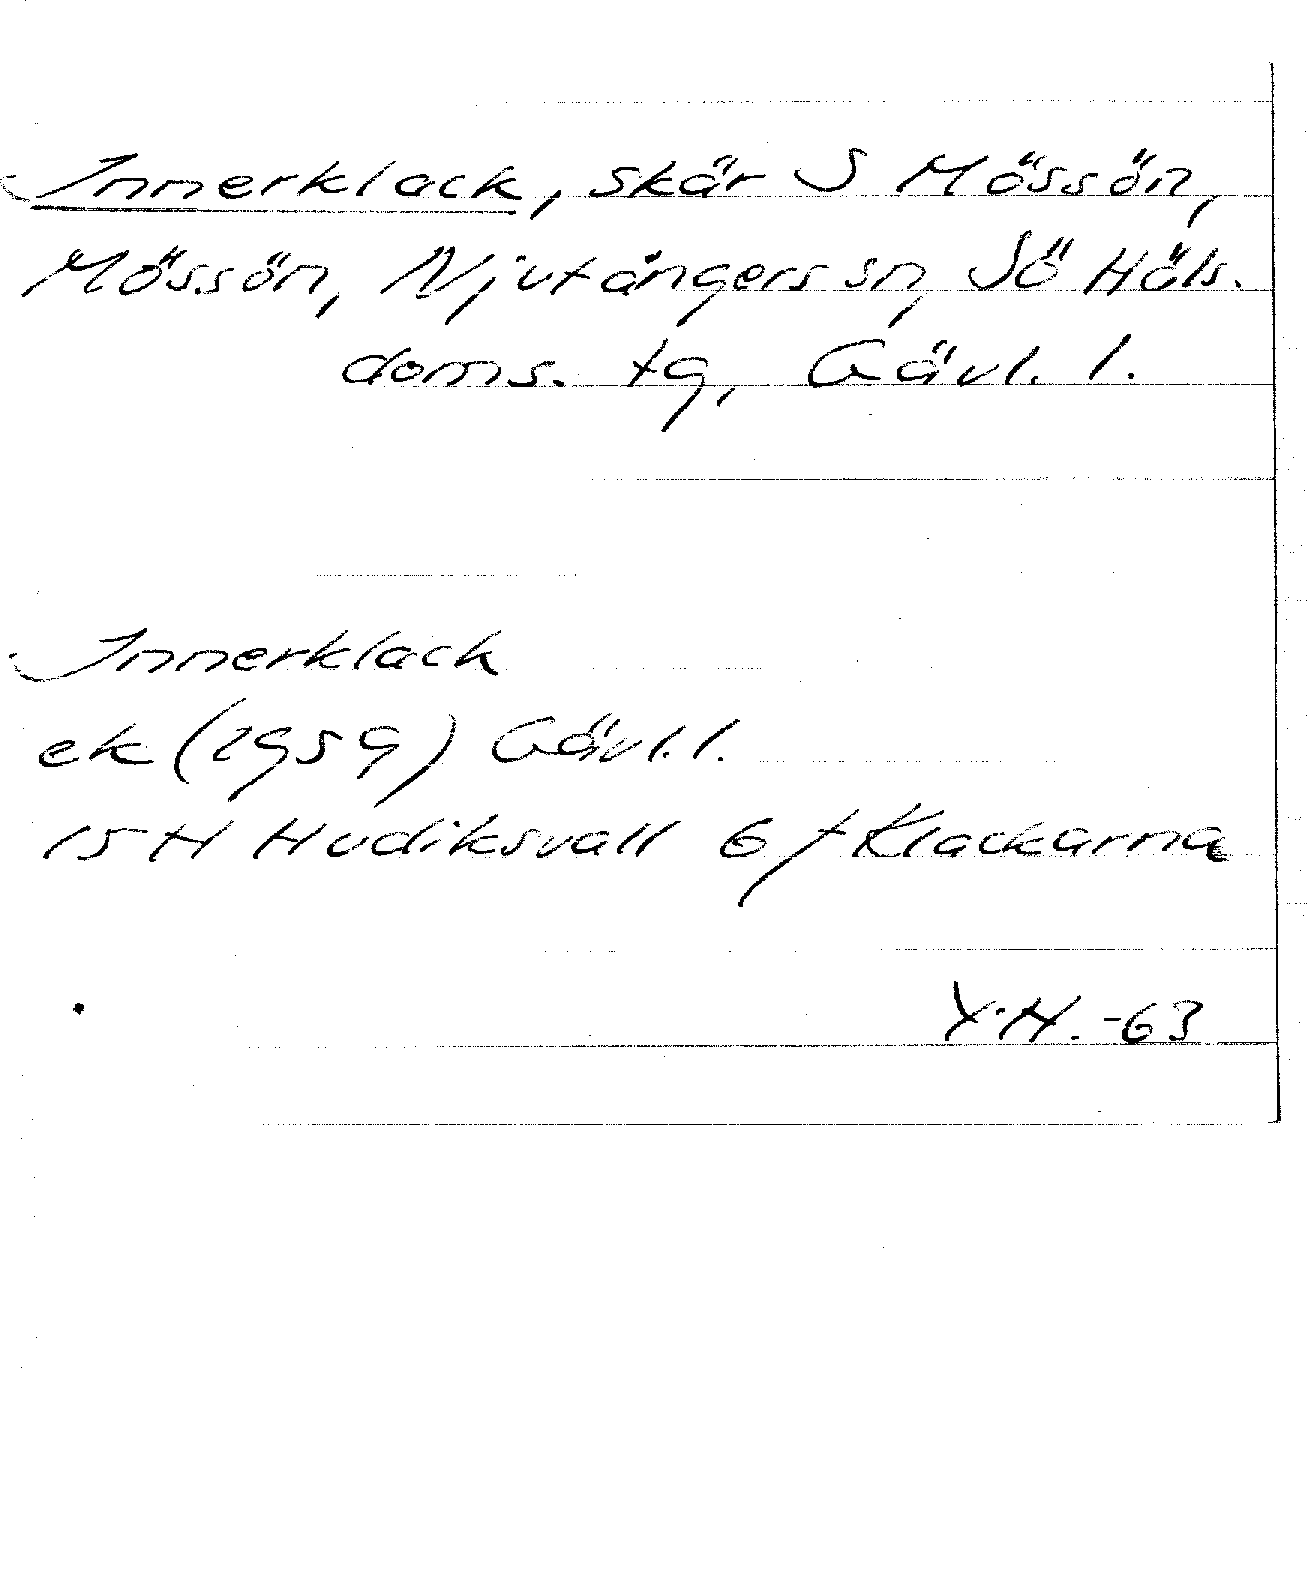 Innerklack, skär S Mössön,
Mössön, Njutångers sn, SÖ Häls.
doms. tg, Gävl. l.
Innerklack
ek (1959) Gävl. l.
15 H Hudiksvall 6 f Klackarna
Y.H. -63